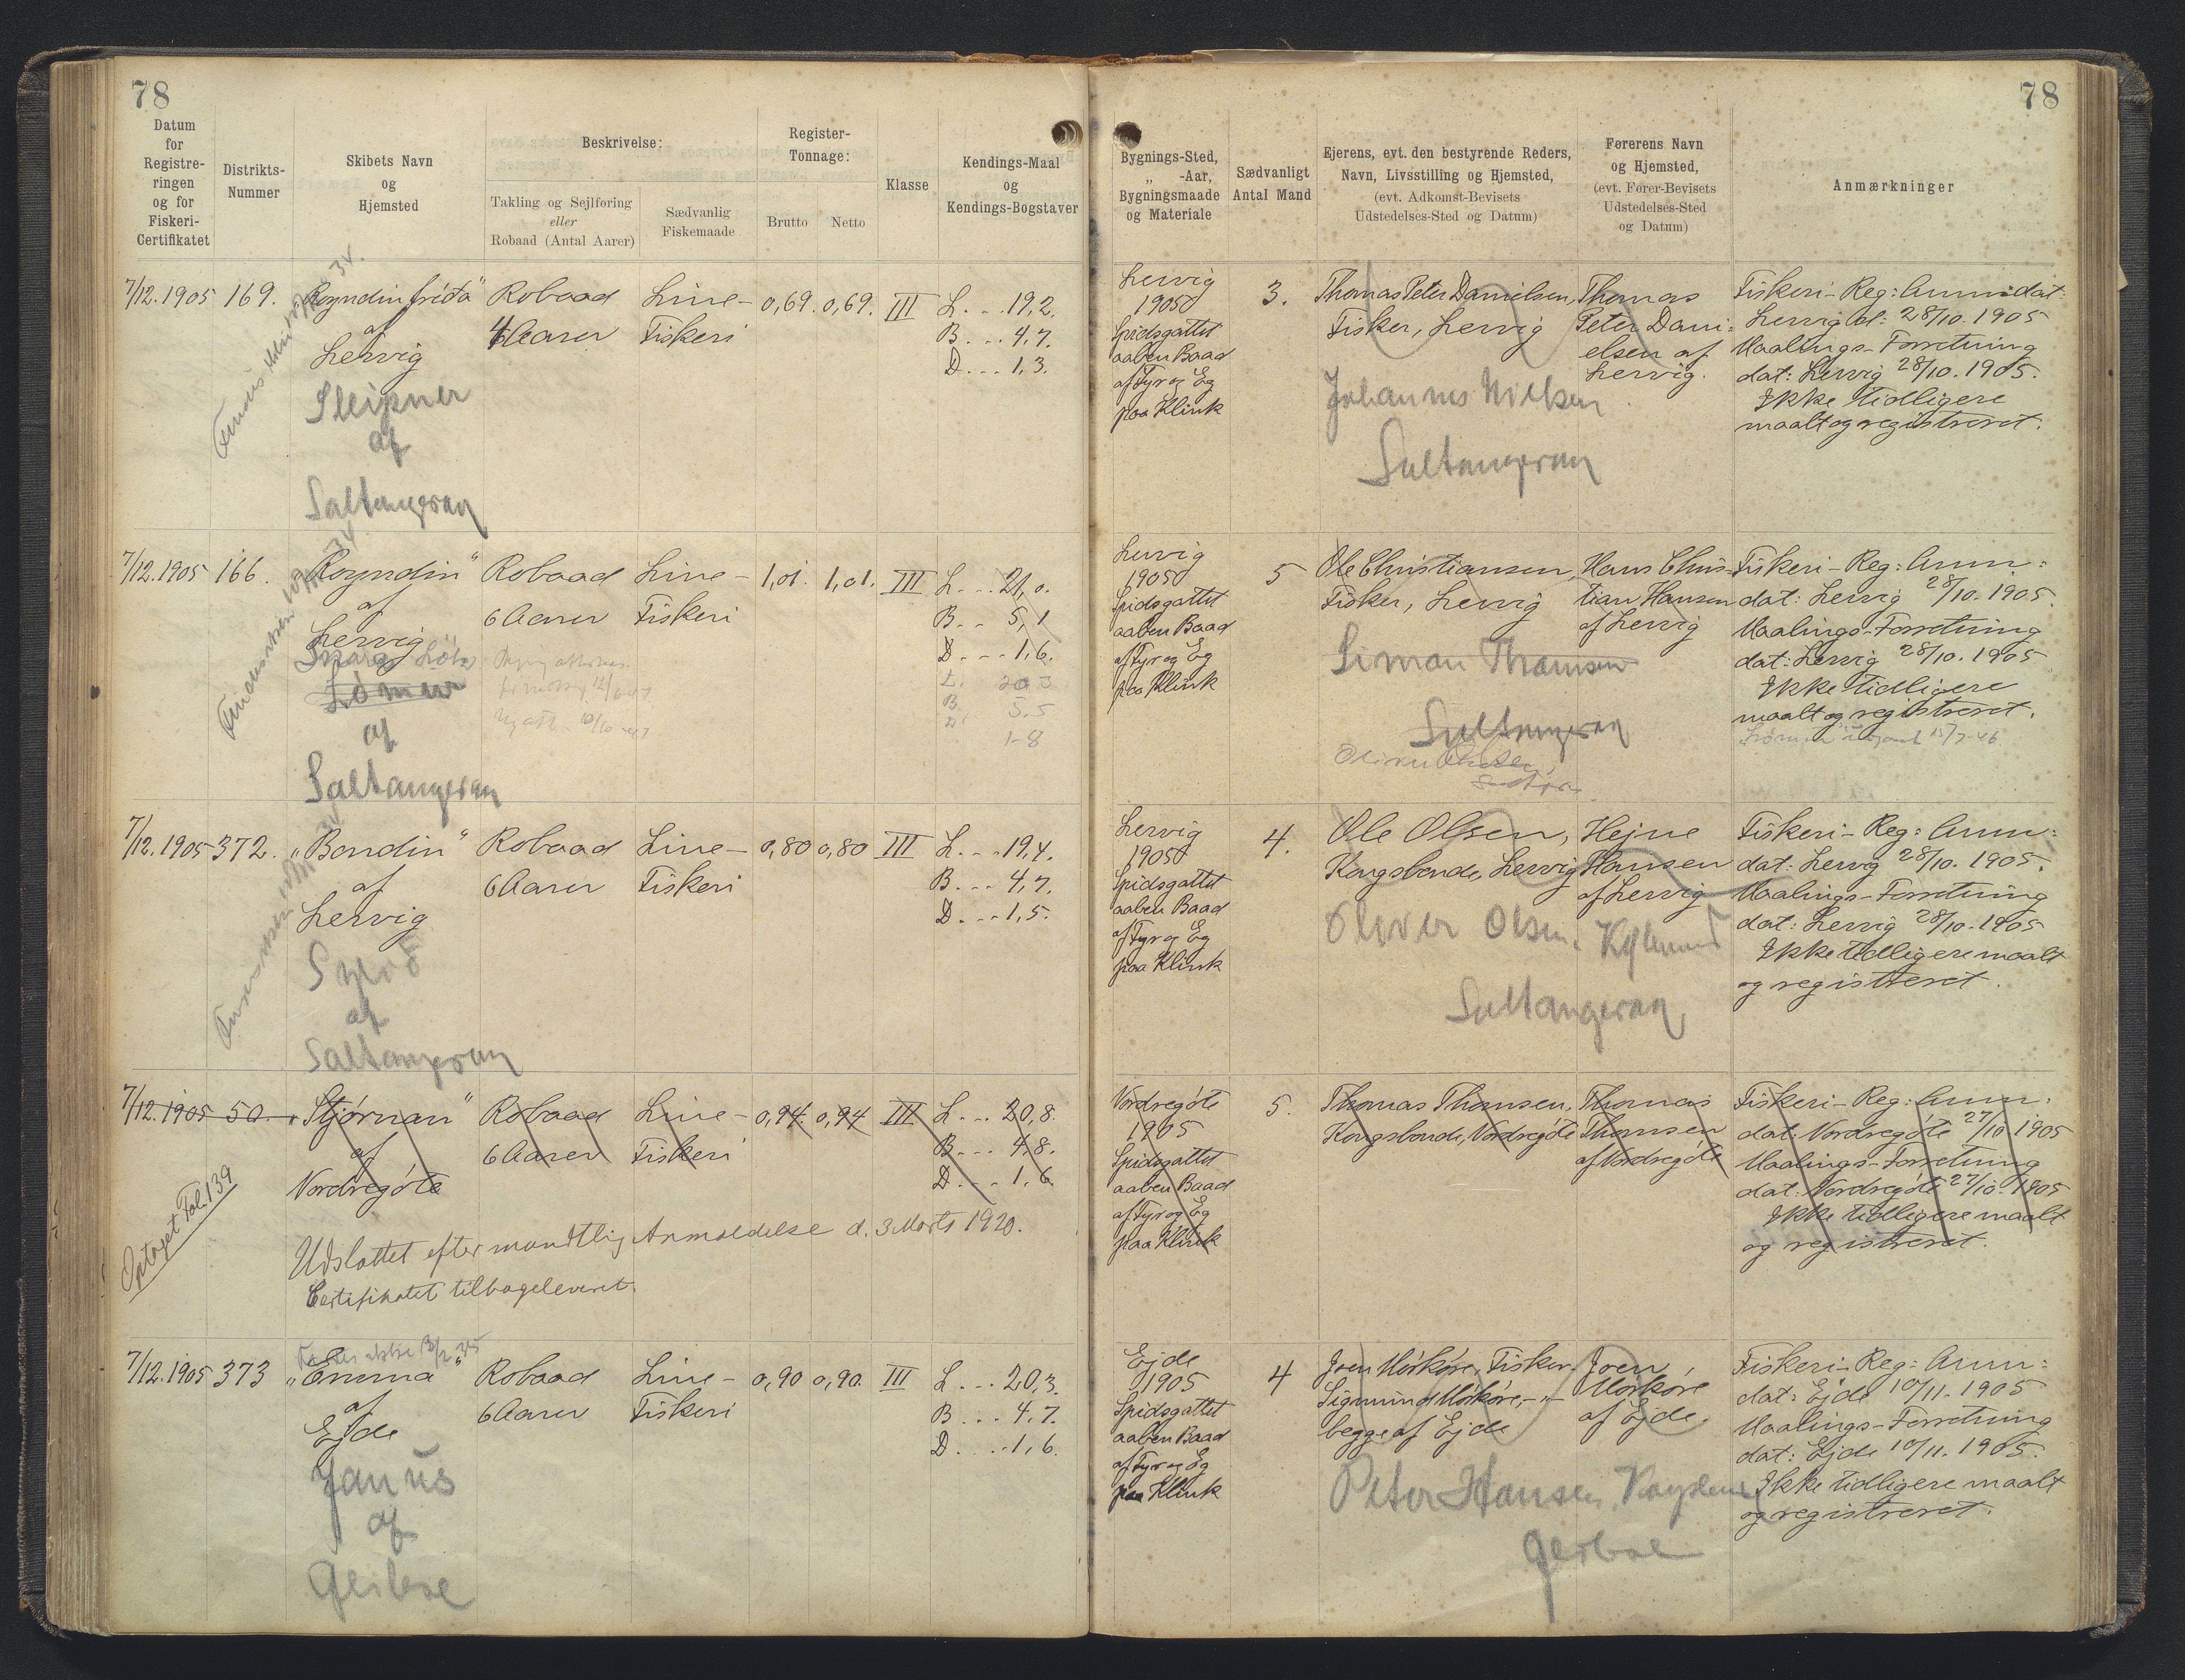 78
78
Datum
for
Registre-
ringen
og for
Fiskeri-
Certifikatet
Distrikts-
Nummer
Skibets Navn
og
Hjemsted
Beskrivelse:
Takling og Sejlføring
eller
Robaad (Antal Aarer)
Sædvanlig
Fiskemaade
Register-
Tonnage:
Brutto
Netto
Klasse
Kendings-Maal
og
Kendings-Bogstaver
Bygnings-Sted,
„ -Aar,
Bygningsmaade
og Materiale
Sædvanligt
Antal Mand
Ejerens, evt. den bestyrende Reders,
Navn, Livsstilling og Hjemsted,
(evt. Adkomst-Bevisets
Udstedelses-Sted og Datum)
Førerens Navn
og Hjemsted,
(evt. Fører-Bevisets
Udstedelses-Sted
og Datum)
Anmærkninger
7/12.1905
169.
„Royndin frída“
af
Lervig
Sleipner
af
Saltangeraa
Robaad
4 Aarer
Line-
Fiskeri
0,69.
0,69.
III
L. . . 19,2.
B. . . 4,7.
D. . . 1,3.
Lervig
1905
Spidsgattet
aaben Baad
af Fyr og Eg
paa Klink
3.
Thomas Peter Danielsen,
Fisker, Lervig
Johannes Nielsen
Saltangeraa
Thomas
Peter Dani-
elsen af
Lervig.
Fiskeri-Reg: Anm: dat:
Lervig d: 28/10.1905
Maalings-Forretning
dat: Lervig 28/10.1905.
Ikke tidligere
maalt og registreret.
7/12.1905
166.
„Royndin“
af
Lervig
af
Saltangeraa
Robaad
6 Aarer
Line-
Fiskeri
1,01.
1,01.
III
L. . . 21,0.
B. . . 5,1
D. . . 1,6.
L. 20 3
B. 5.5
D. 1-8
Lervig
1905
Spidsgattet
aaben Baad
af Fyr og Eg
paa Klink
5
Ole Christiansen,
Fisker, Lervig
Simon Thomsen
Saltangeraa
Hans Chris-
tian Hansen
af Lervig
Fiskeri-Reg: Anm:
dat: Lervig 28/10.1905.
Maalings-Forretning
dat: Lervig 28/10.1905
Ikke tidligere
maalt og registreret.
7/12.1905
372.
„Bondin“
af
Lervig
af
Saltangeraa
Robaad
6 Aarer
Line-
Fiskeri
0,80
0,80
III
L. . . 19,4.
B. . . 4,7.
D. . . 1,5.
Lervig
1905
Spidsgattet
aaben Baad
af Fyr og Eg
paa Klink
4.
Ole Olsen,
Kongsbonde, Lervig
Oliver Olsen.
Saltangeraa
Hejne
Hansen
af Lervig
Fiskeri-Reg: Anm:
dat: Lervig 28/10.1905.
Maalings-Forretning
dat: Lervig 28/10.1905
Ikke tidligere maalt
og registreret.
7/12.1905
50.
„Stjørnan“
af
Nordregöte
Optaget Fol. 139
Robaad
6 Aarer
Line-
Fiskeri
0,94.
0,94
III
L. . . 20,8.
B. . . 4,8.
D. . . 1,6
Udslettet efter mundtlig Anmeldelse d. 3 Marts 1920.
Certifikatet tilbageleveret.
Nordregöte
1905
Spidsgattet
aaben Baad
af Fyr og Eg
paa Klink
5.
Thomas Thomsen,
Kongsbonde, Nordregöte
Thomas
Thomsen
af Nordregöte
Fiskeri-Reg: Anm:
dat: Nordregöte 27/10 1905
Maalings-Forretning
dat: Nordregöte 27/10.1905
Ikke tidligere maalt
og registreret.
7/12.1905
373
„Emma“
af
Ejde
Janus
af
Robaad
6 Aarer
Line-
Fiskeri
0,90
0,90.
III
L. . . 20,3.
B. . . 4,7.
D. . . 1,6.
Ejde
1905
Spidsgattet
aaben Baad
af Fyr og Eg
paa Klink
4
Joen Mörköre, Fisker.
Sigmund Mörköre, -"-
begge af Ejde
Peter Hansen
Joen
Mörköre
af Ejde.
Fiskeri-Reg: Anm:
dat: Ejde 10/11.1905
Maalings-Forretning
dat: Ejde 10/11.1905.
Ikke tidligere maalt
og registreret.